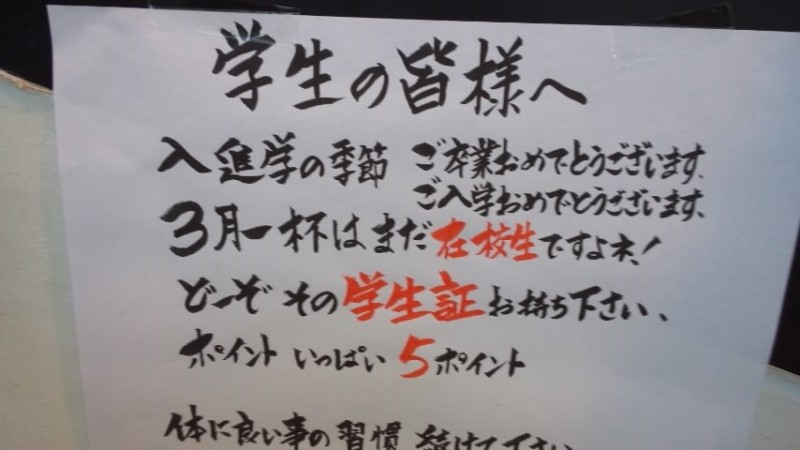 学生の皆様へ
入進学の季節 ご卒業おめでとうございます。
ご入学おめでとうございます。
3月一杯はまだ在校生ですよネ!
どーぞその学生証お持ち下さい、
ポイントいっぱい5ポイント
体に良い事の習慣 続けて下さい